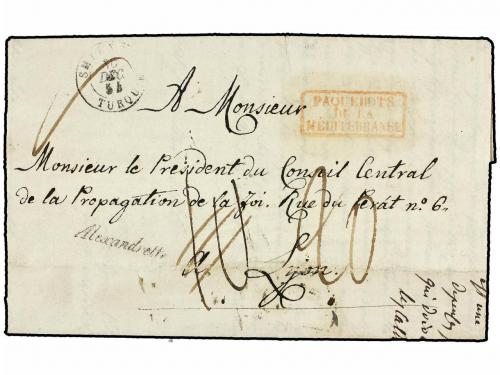 SMYRNE
DEC
TURQUIE
PAQUEBOTS
DE LA
MÉDITERRANÉE
A Monsieur
Monsieur le Président du Conseil Central
de la Propagation de la foi. Rue du Perat n° 6.
Alexandrette
a Lyon.
une
qui doiv